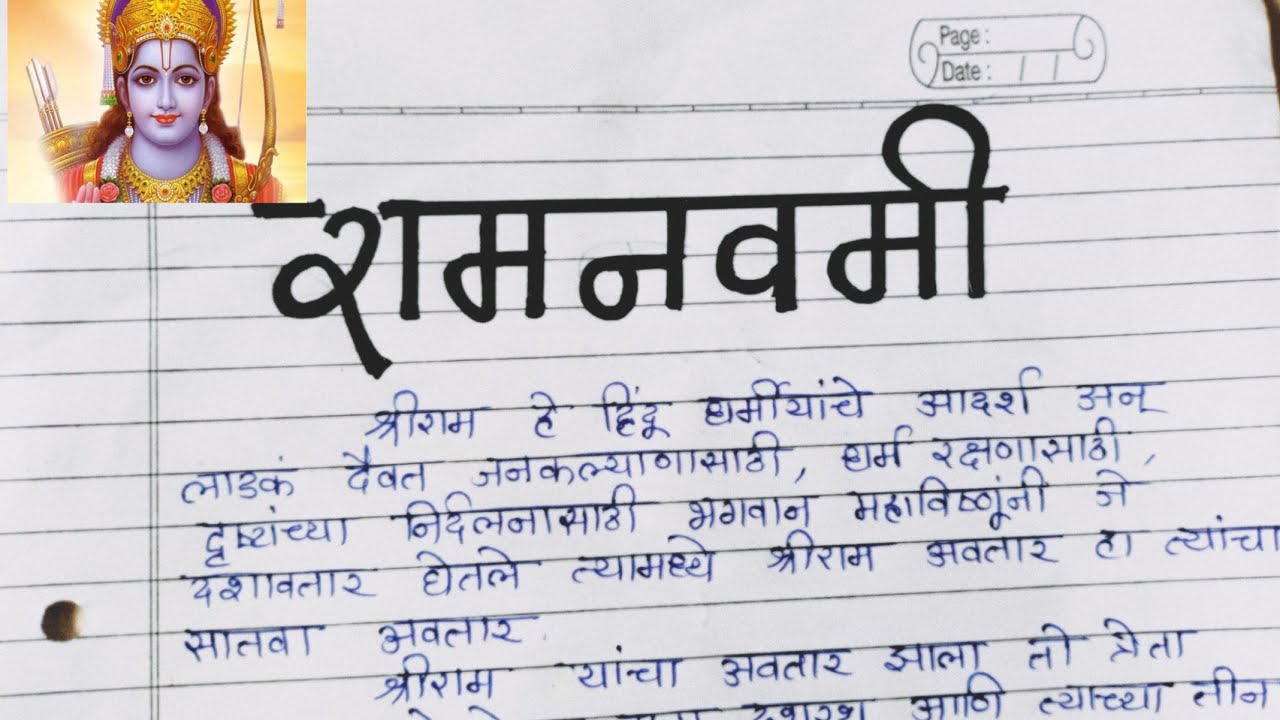 Page :
Date : / /
रामनवमी
श्रीराम हे हिंदू धर्मीयांचे आदर्श अन्
लाडकं दैवत जनकल्याणासाठी, धर्म रक्षणासाठी,
दृष्टांच्या निर्दलनासाठी भगवान महाविष्णूंनी जे
दशावतार घेतले त्यामध्ये श्रीराम अवतार हा त्यांचा
सातवा अवतार.
श्रीराम यांचा अवतार झाला तो त्रेता
दशरथ आणि त्याच्या तीन